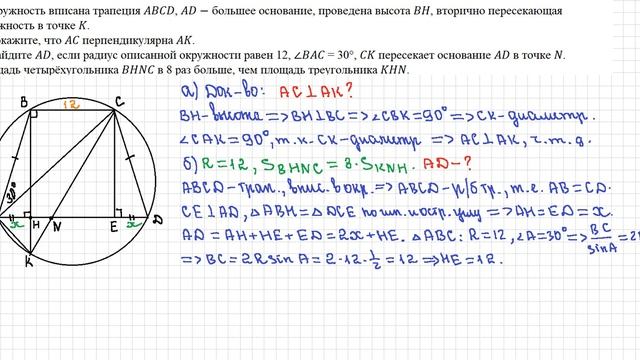 ружность вписана трапеция ABCD, AD — большее основание, проведена высота BH, вторично пересекающая
жность в точке K.
кажите, что AC перпендикулярна AK.
айдите AD, если радиус описанной окружности равен 12, ∠BAC = 30°, CK пересекает основание AD в точке N.
щадь четырёхугольника BHNC в 8 раз больше, чем площадь треугольника KHN.
а) Док-во: AC⊥AK?
BH-высота => BH⊥BC => ∠CBK=90° => CK-диаметр.
∠CAK=90°, т.к. CK-диаметр => AC⊥AK, ч.т.д.
б) R=12, S_BHNC = 8·S_KNH. AD-?
ABCD-трап., впис. в окр. => ABCD-р/б тр., т.е. AB=CD.
CE⊥AD, △ABH=△DCE по гип. и остр. углу => AH=ED=x.
AD=AH+HE+ED=2x+HE. △ABC: R=12, ∠A=30° => BC/sinA=2
=> BC=2R sinA=2·12·1/2=12 => HE=12.
B 12 C
30°
x H N E x D
K